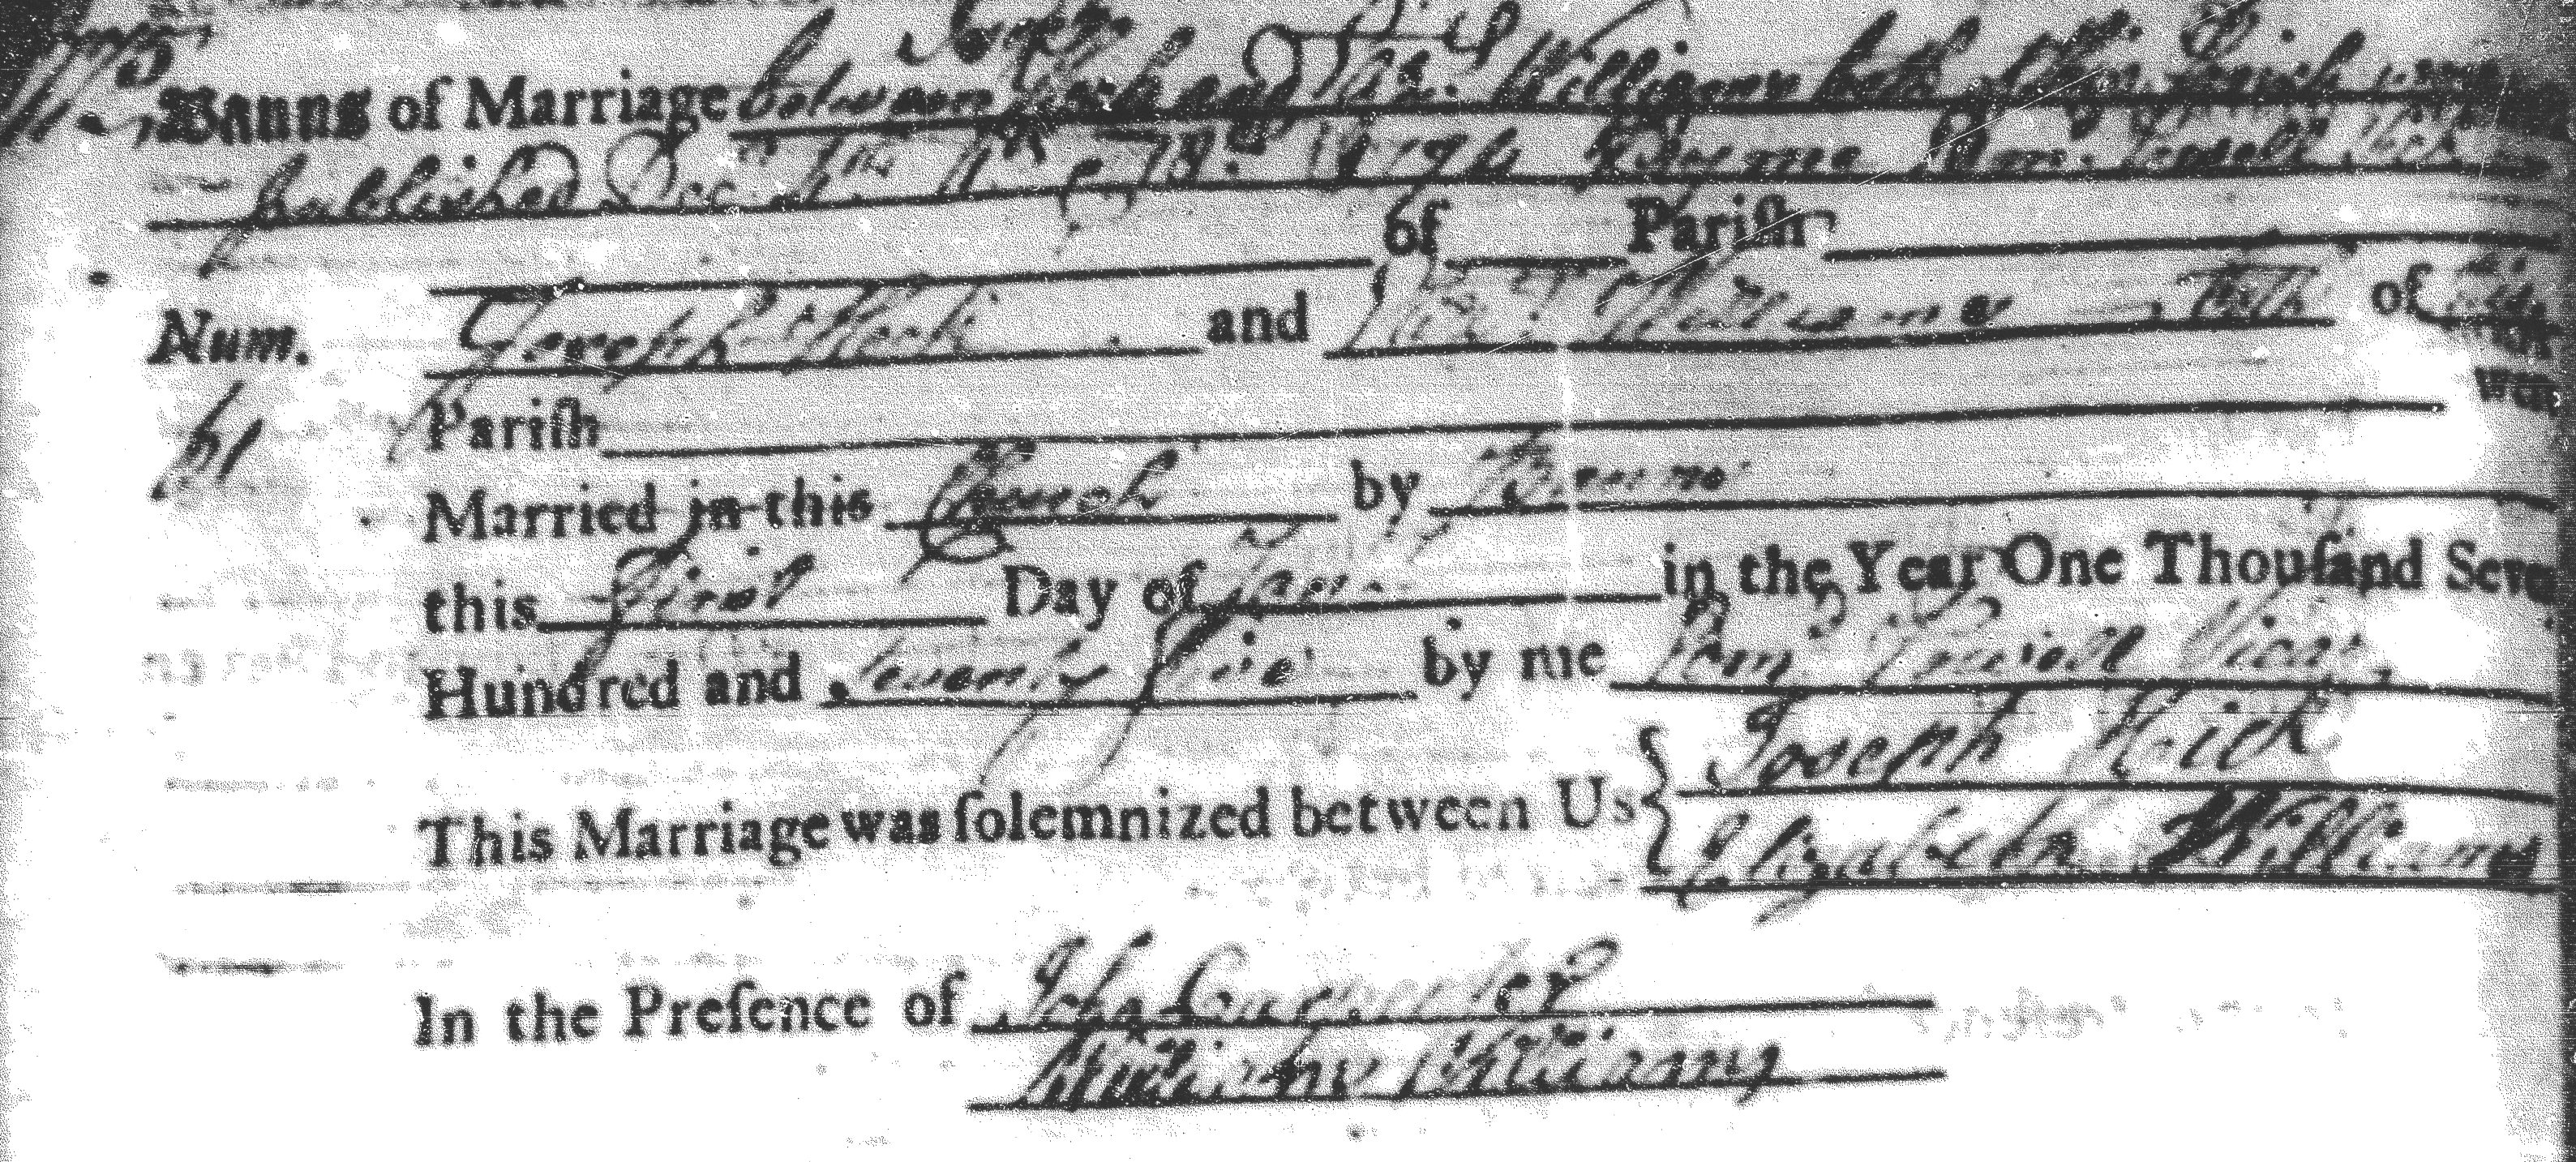 Banns of Marriage between Joseph and Eliz. Williams both of this Parish were
published Dec. 4th 11 & 18. 1774 by me Ben. Powell Vicar
of Pariſh
Num. Joseph and Eliz. Williams both of this
61 Pariſh were
Married in this Church by Banns
this First Day of Jan. in the Year One Thouſand Seve
Hundred and Seventy five by me Ben. Powell Vicar
This Marriage was ſolemnized between Us { Joseph
Elizabeth Williams
In the Preſence of John Carpenter
William Williams